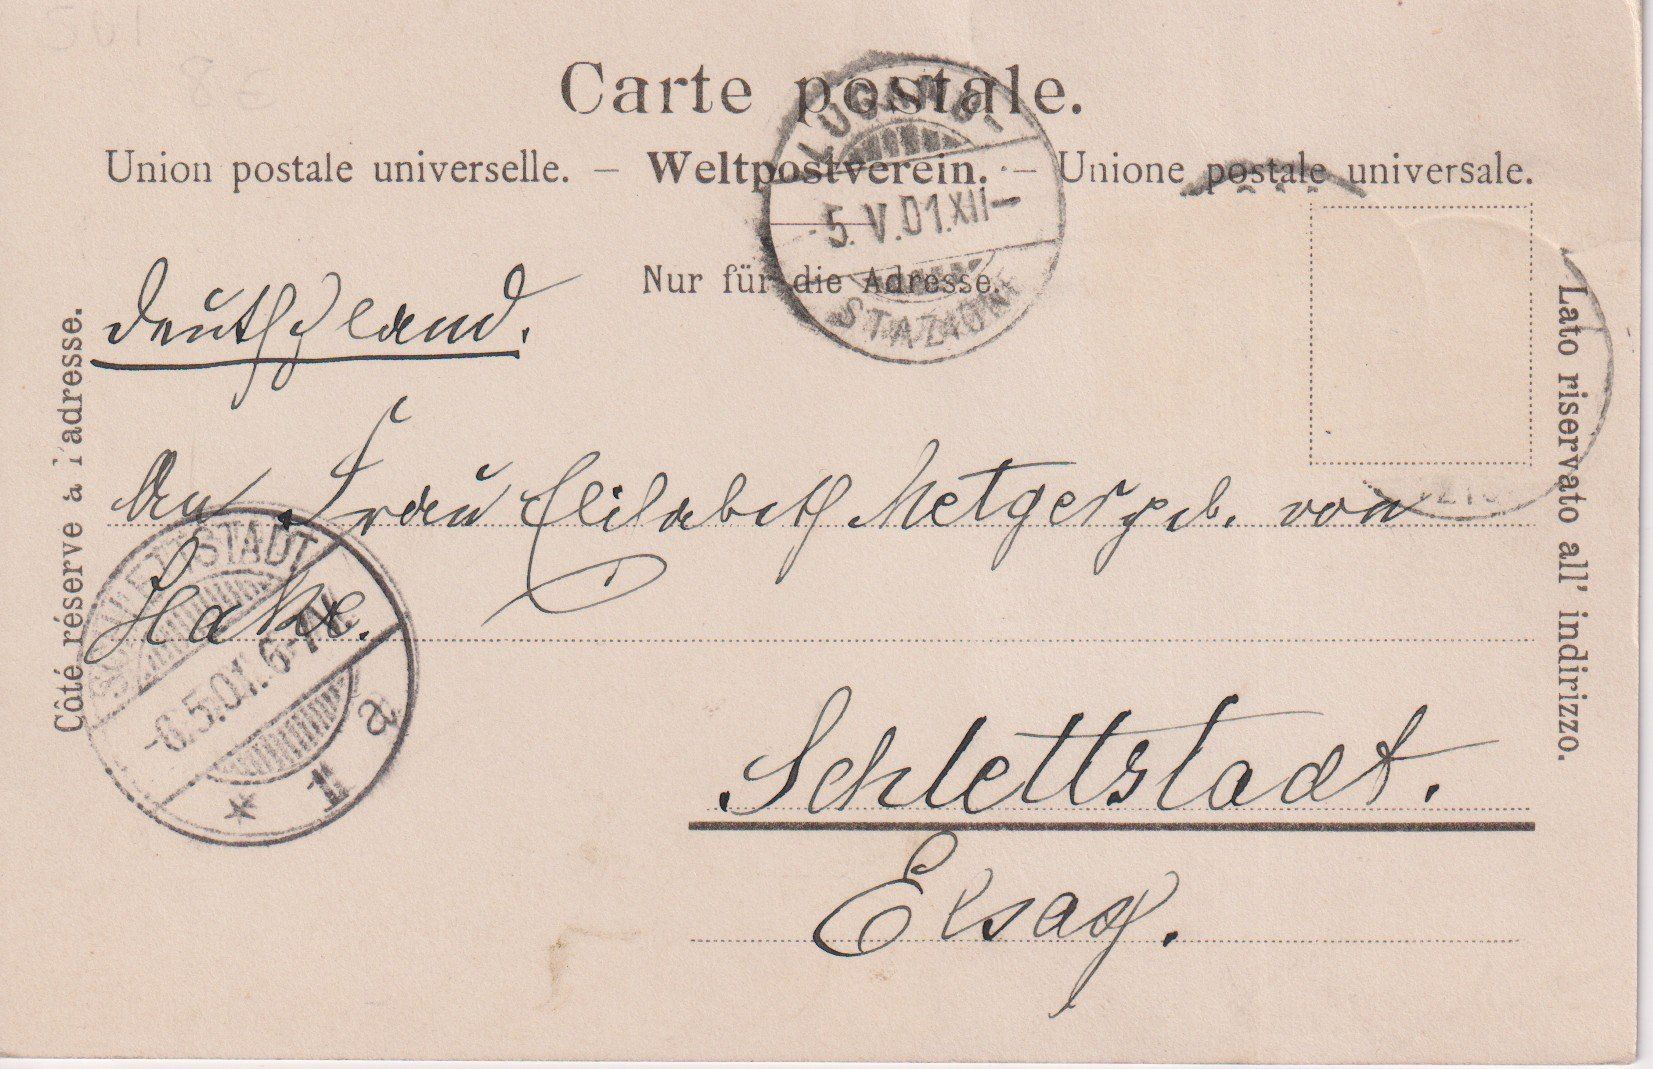 Carte postale.
Union postale universelle. – Weltpostverein. – Unione postale universale.
Nur für die Adresse.
Côté réservé à l'adresse.
Lato riservato all' indirizzo.
LUGANO-
5. V. 01. XII–
STAZIONE
Deutschland.
An Frau Elisabeth Metger geb. von
Hake.
Schlettstadt.
Elsaß.
SCHLETTSTADT
-6.5.01. 6-7V.
* 1 a